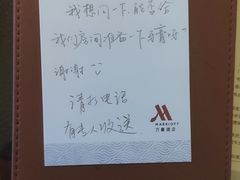 我想问一下，能否给
我们房间准备一下
谢谢
请打电话
有专人收送
MARRIOTT
万豪酒店